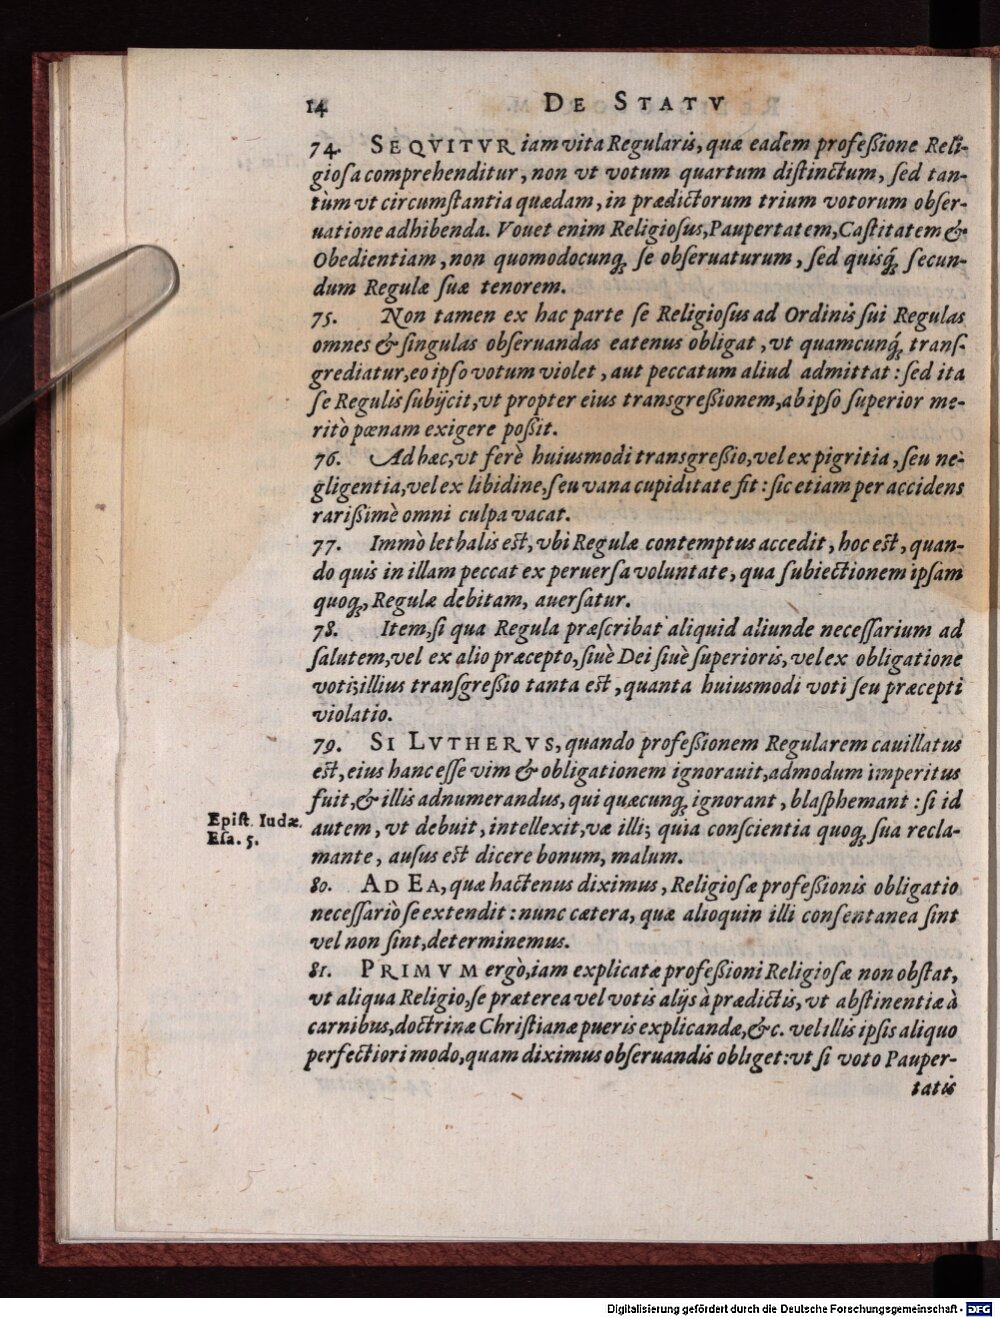 14 DE STATV
74. SEQVITVR iam vita Regularis, quæ eadem profeßione Reli-
gioſa comprehenditur, non vt votum quartum diſtinctum, ſed tan-
tùm vt circumſtantia quædam, in prædictorum trium votorum obſer-
uatione adhibenda. Vouet enim Religioſus, Paupertatem, Caſtitatem &
Obedientiam, non quomodocunq́; ſe obſeruaturum, ſed quisq́; ſecun-
dum Regulæ ſuæ tenorem.
75. Non tamen ex hac parte ſe Religioſus ad Ordinis ſui Regulas
omnes & ſingulas obſeruandas eatenus obligat, vt quamcunq́; tranſ-
grediatur, eo ipſo votum violet, aut peccatum aliud admittat: ſed ita
ſe Regulis ſubijcit, vt propter eius transgreßionem, ab ipſo ſuperior me-
ritò pœnam exigere poßit.
76. Ad hæc, vt ferè huiusmodi transgreßio, vel ex pigritia, ſeu ne-
gligentia, vel ex libidine, ſeu vana cupiditate fit: ſic etiam per accidens
rarißimè omni culpa vacat.
77. Immò lethalis eſt, vbi Regulæ contemptus accedit, hoc eſt, quan-
do quis in illam peccat ex peruerſa voluntate, qua ſubiectionem ipſam
quoq;, Regulæ debitam, auerſatur.
78. Item, ſi qua Regula præſcribat aliquid aliunde neceſſarium ad
ſalutem, vel ex alio præcepto, ſiuè Dei ſiuè ſuperioris, vel ex obligatione
voti; illius tranſgreßio tanta eſt, quanta huiusmodi voti ſeu præcepti
violatio.
79. SI LVTHERVS, quando profeßionem Regularem cauillatus
eſt, eius hanc eſſe vim & obligationem ignorauit, admodum imperitus
fuit, & illis adnumerandus, qui quæcunq; ignorant, blaſphemant: ſi id
Epiſt. Iudæ. autem, vt debuit, intellexit, væ illi; quia conſcientia quoq; ſua recla-
Eſa. 5. mante, auſus eſt dicere bonum, malum.
80. AD EA, quæ hactenus diximus, Religioſæ profeßionis obligatio
neceſſariò ſe extendit: nunc cætera, quæ alioquin illi conſentanea ſint
vel non ſint, determinemus.
81. PRIMVM ergò, iam explicatæ profeßioni Religioſæ non obſtat,
vt aliqua Religio, ſe præterea vel votis alijs à prædictis, vt abſtinentiæ à
carnibus, doctrinæ Chriſtianæ pueris explicandæ, &c. vel illis ipſis aliquo
perfectiori modo, quam diximus obſeruandis obliget: vt ſi voto Pauper-
tatis
Digitalisierung gefördert durch die Deutsche Forschungsgemeinschaft - DFG